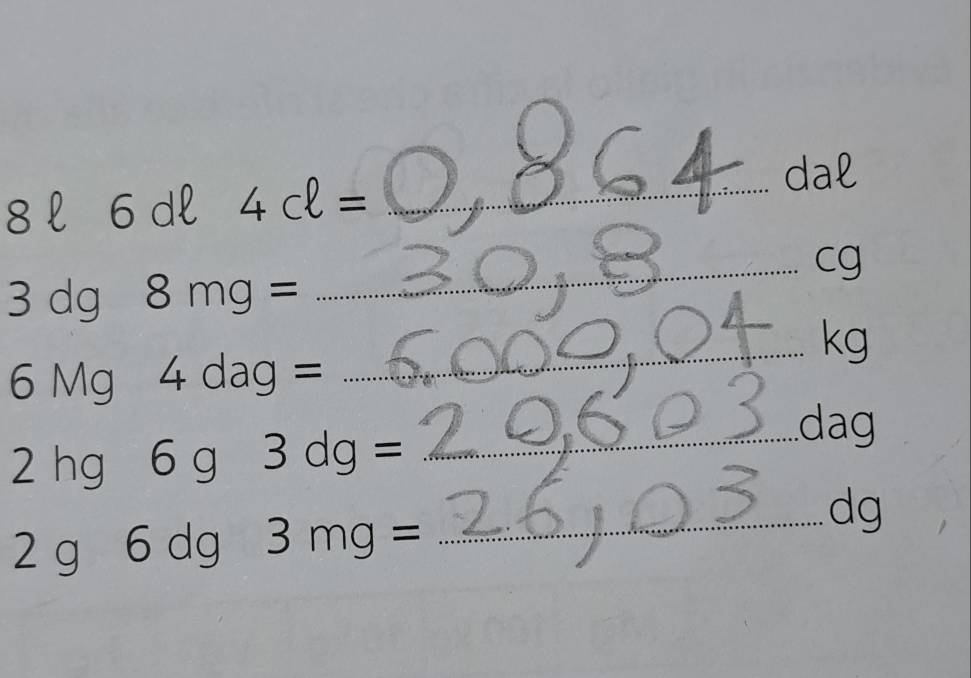 8 ℓ 6 dℓ 4 cℓ = 0,864 daℓ
3 dg 8 mg = 30,8 cg
6 Mg 4 dag = 6.000,04 kg
2 hg 6 g 3 dg = 20,603 dag
2 g 6 dg 3 mg = 26,03 dg